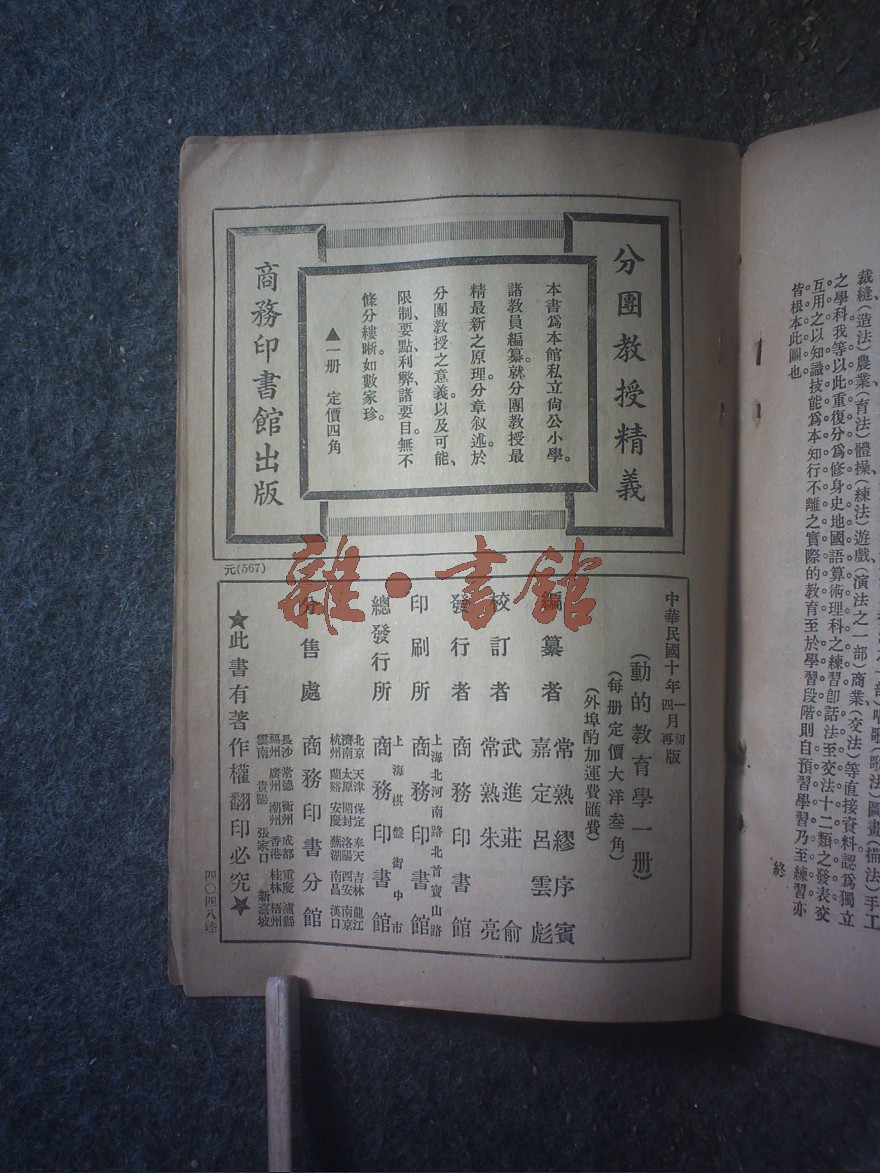 裁縫、(造法)農業(育法)體操(練法)遊戲(演法之一部)商業(交法)等直接資料認爲獨立
之學科我等以此重復分爲修身史地國語算術理科之練習卽話法至交法十二類之發表交
互用之以知識技能爲本知行不離之實際的教育至於學習段階則自預習學習乃至練習亦
皆根本此圖也。
終
分團教授精義
本書爲本館私立尙公小學。
諸教員編纂就分團教授最
精最新之原理分章叙述於
分團教授之意義以及可能、
限制、要點、利弊、諸要目。無不
條分縷晰。如數家珍。
▲一册 定價四角
商務印書館出版
元(567)
中華民國十年一月初版
四月再版
(動的教育學一册)
(每册定價大洋叁角)
(外埠酌加運費匯費)
編纂者 常熟繆序賓
嘉定呂雲彪
校訂者 武進莊俞
常熟朱亮
發行者 商務印書館
印刷所 上海北河南路北首寶山路
商務印書館
總發行所 上海棋盤街中市
商務印書館
分售處 商務印書分館
北京 天津 保定 奉天 吉林 龍江
濟南 太原 開封 洛陽 西安 南京
杭州 蘭谿 安慶 蕪湖 南昌 漢口
長沙 常德 衡州 成都 重慶 瀘縣
福州 廣州 潮州 香港 桂林 梧州
雲南 貴陽 張家口 新嘉坡
★此書有著作權翻印必究★
雜·書館